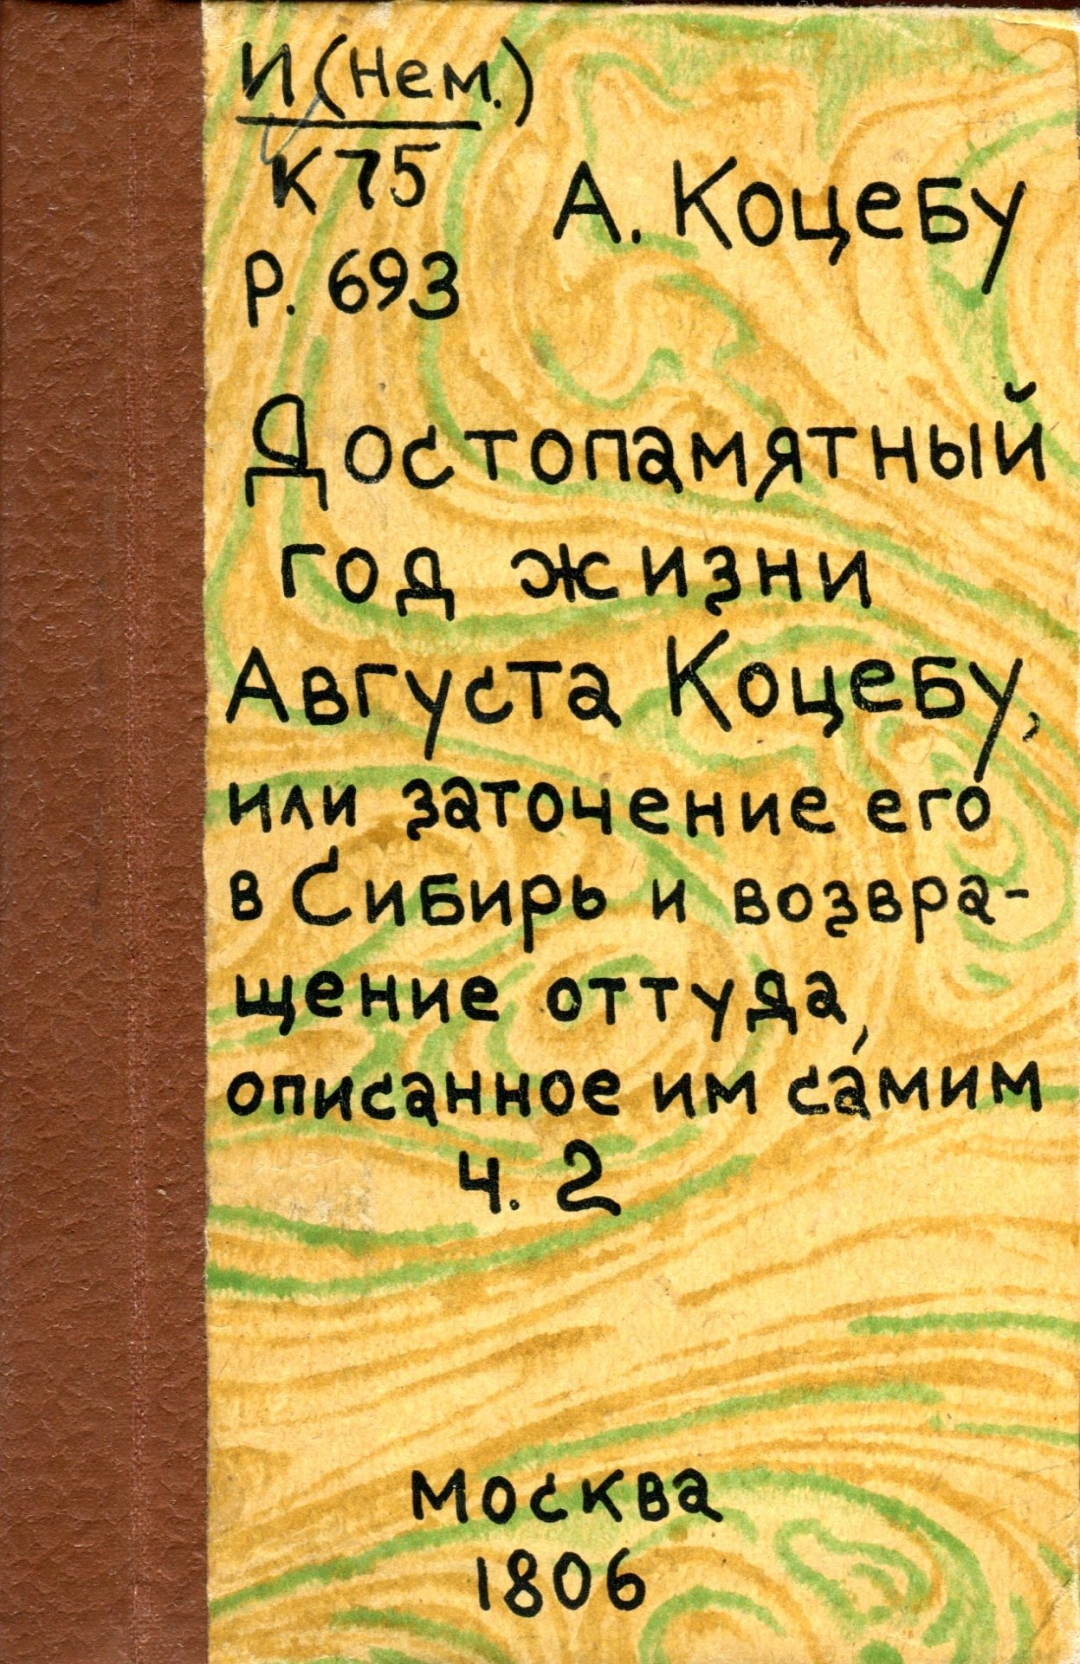 И (Нем.)
К 75
Р. 693
А. Коцебу
Достопамятный
год жизни
Августа Коцебу,
или заточение его
в Сибирь и возвра-
щение оттуда,
описанное им са́мим
ч. 2
Москва
1806